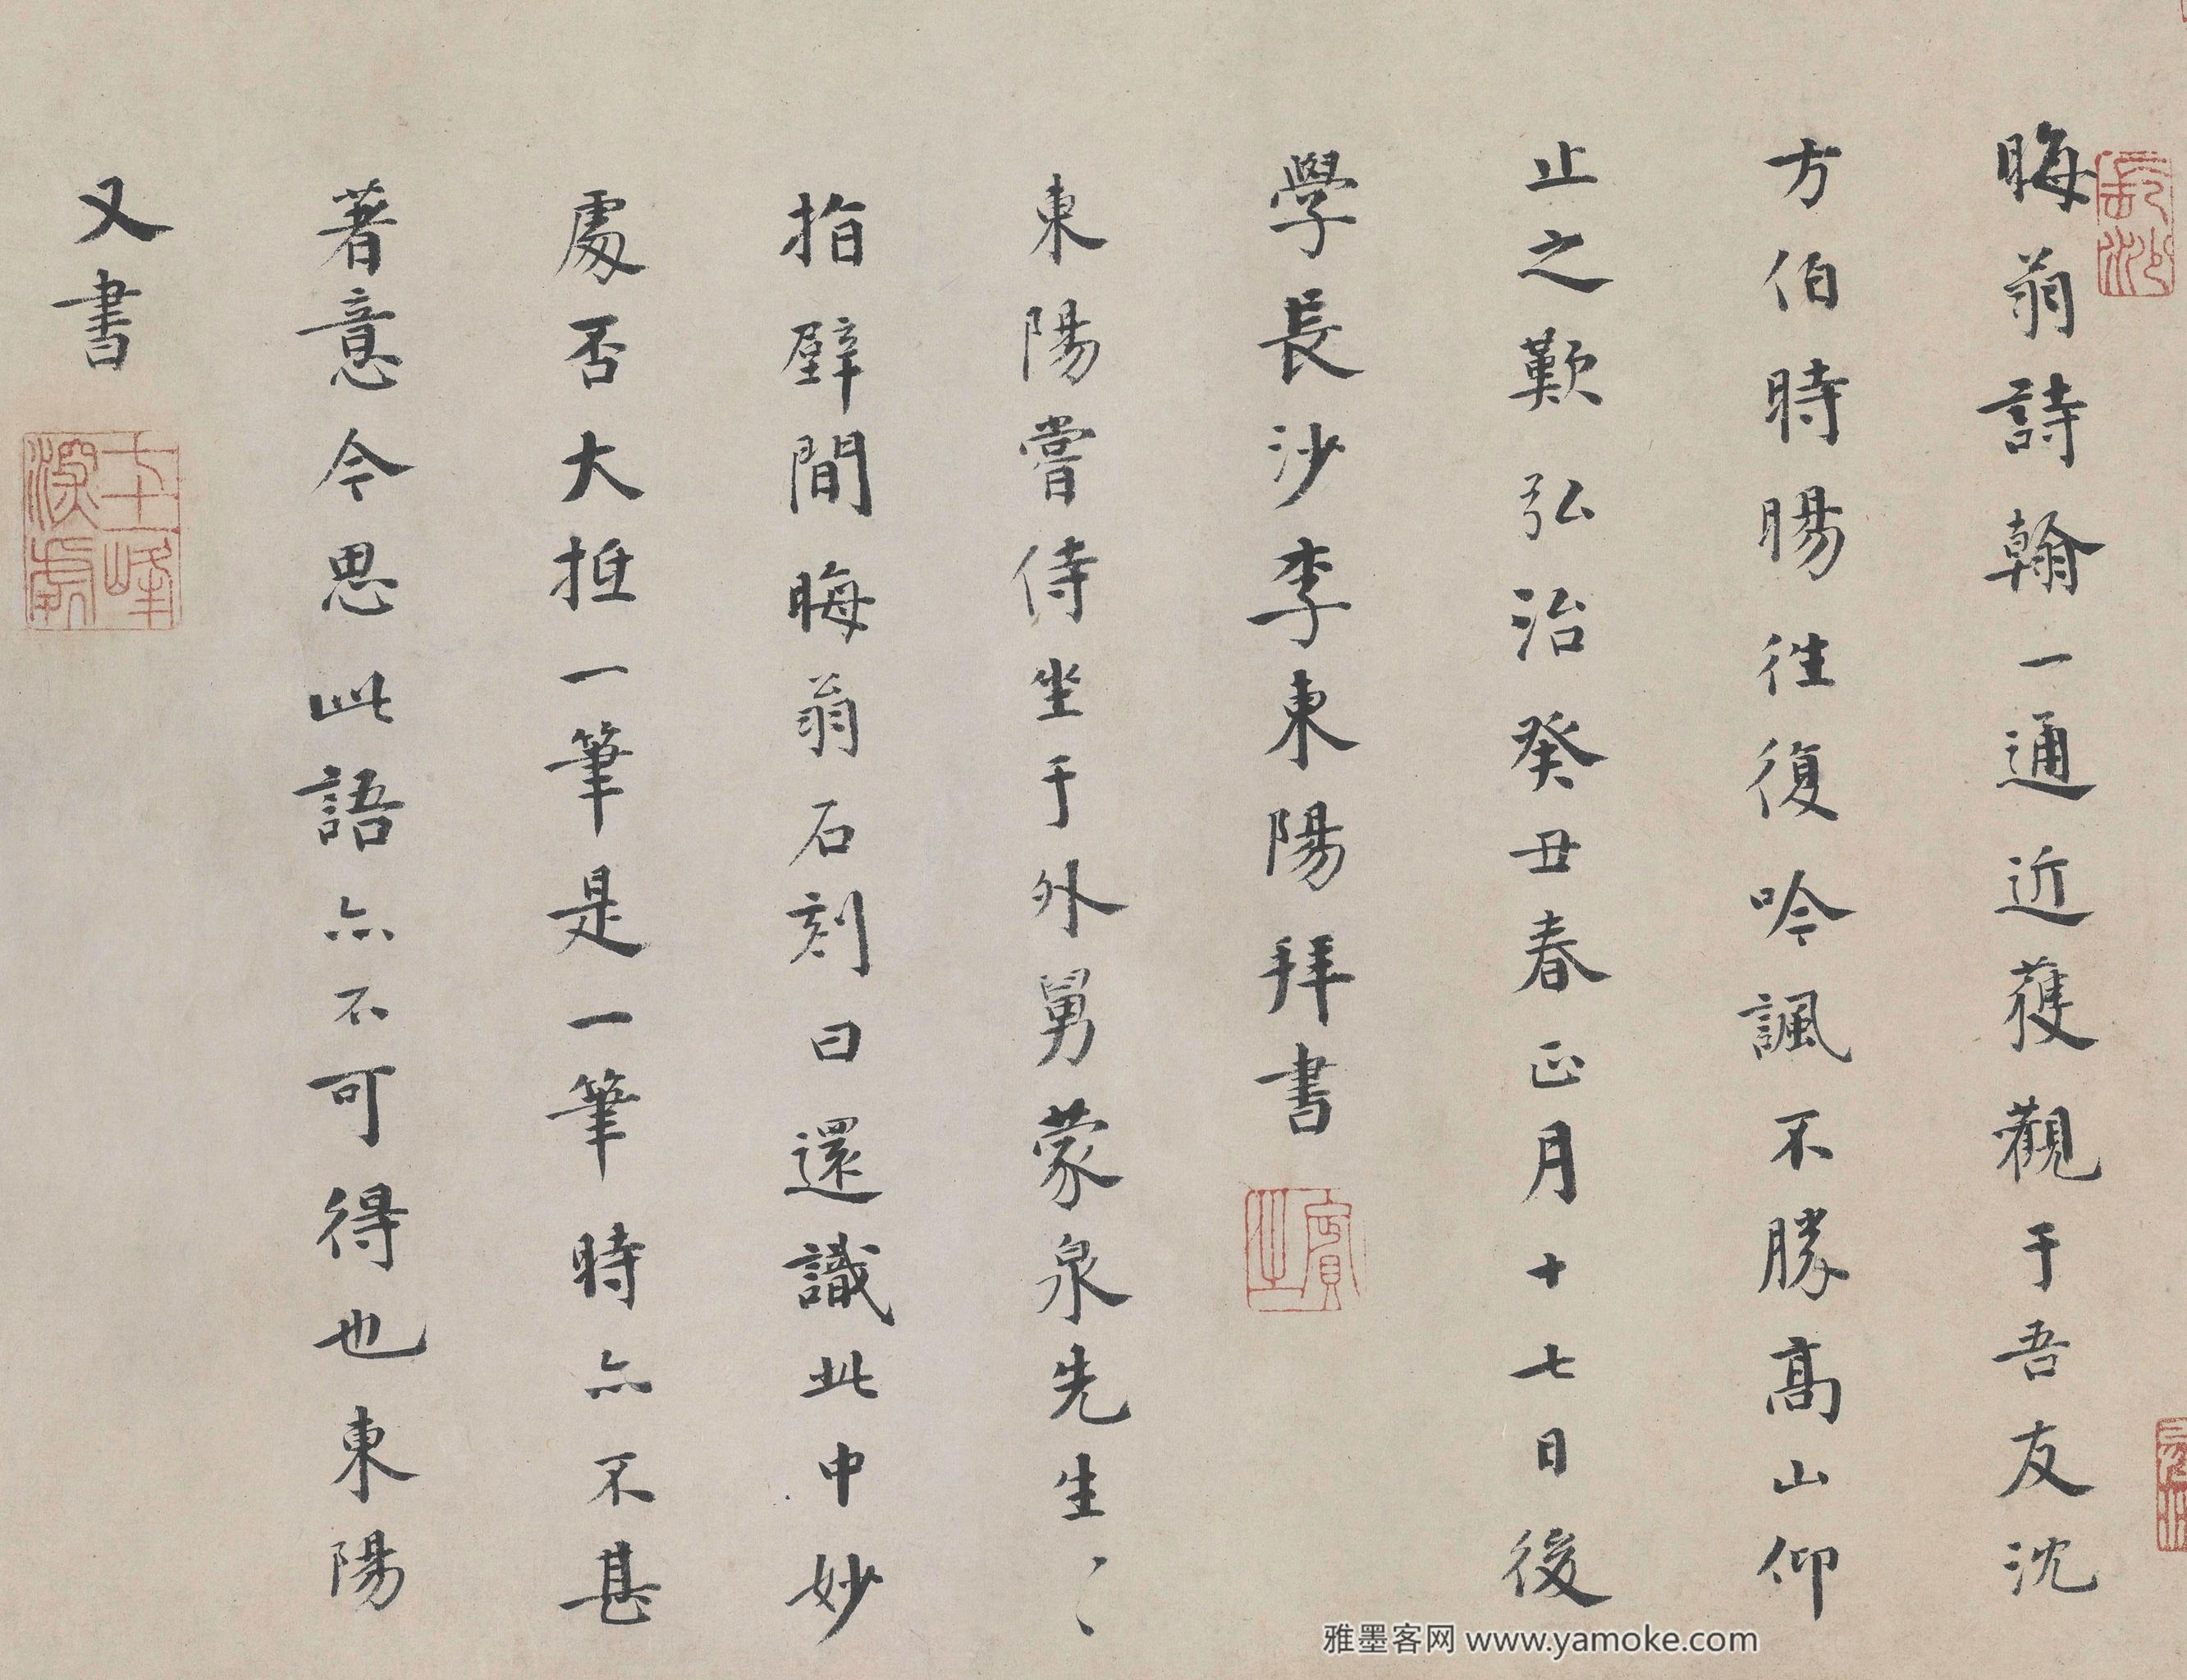 晦翁詩翰一通近獲觀于吾友沈
方伯時暘往復吟諷不勝高山仰
止之歎弘治癸丑春正月十七日後
學長沙李東陽拜書
東陽嘗侍坐于外舅蒙泉先生〻〻
指壁間晦翁石刻曰還識此中妙
處否大抵一筆是一筆時亦不甚
著意今思此語亦不可得也東陽
又書
長沙
賓之
七十二峰深處
雅墨客网 www.yamoke.com